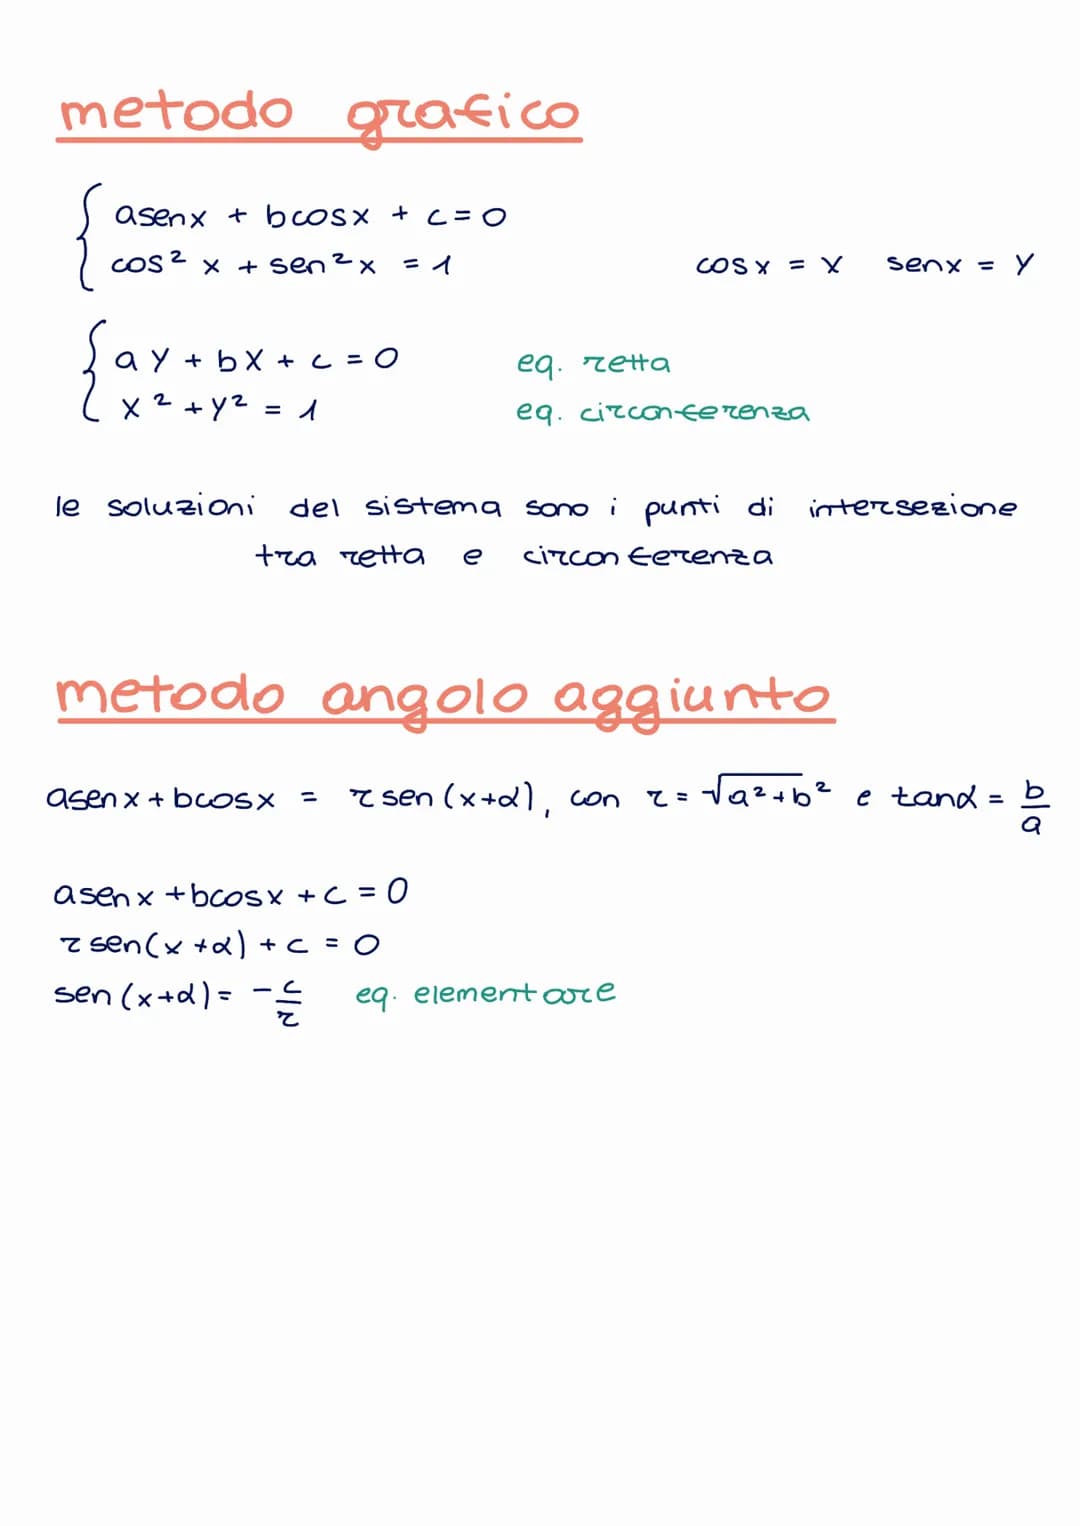 metodo grafico
asenx + bcosx + c = 0
cos² x + sen² x = 1 cosx = X senx = Y
aY + bX + c = 0 eq. retta
X² + Y² = 1 eq. circonferenza
le soluzioni del sistema sono i punti di intersezione
tra retta e circonferenza
metodo angolo aggiunto
asenx + bcosx = r sen (x+α), con r = √a²+b² e tanα = b/a
asenx + bcosx + c = 0
r sen(x+α) + c = 0
sen (x+α) = -c/r eq. elementare